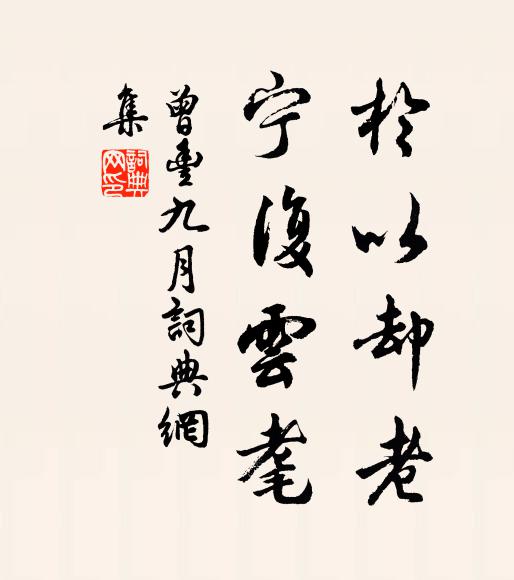 於以却老
宁復雲耄
曾豐九月詞典網
集
詞典网印